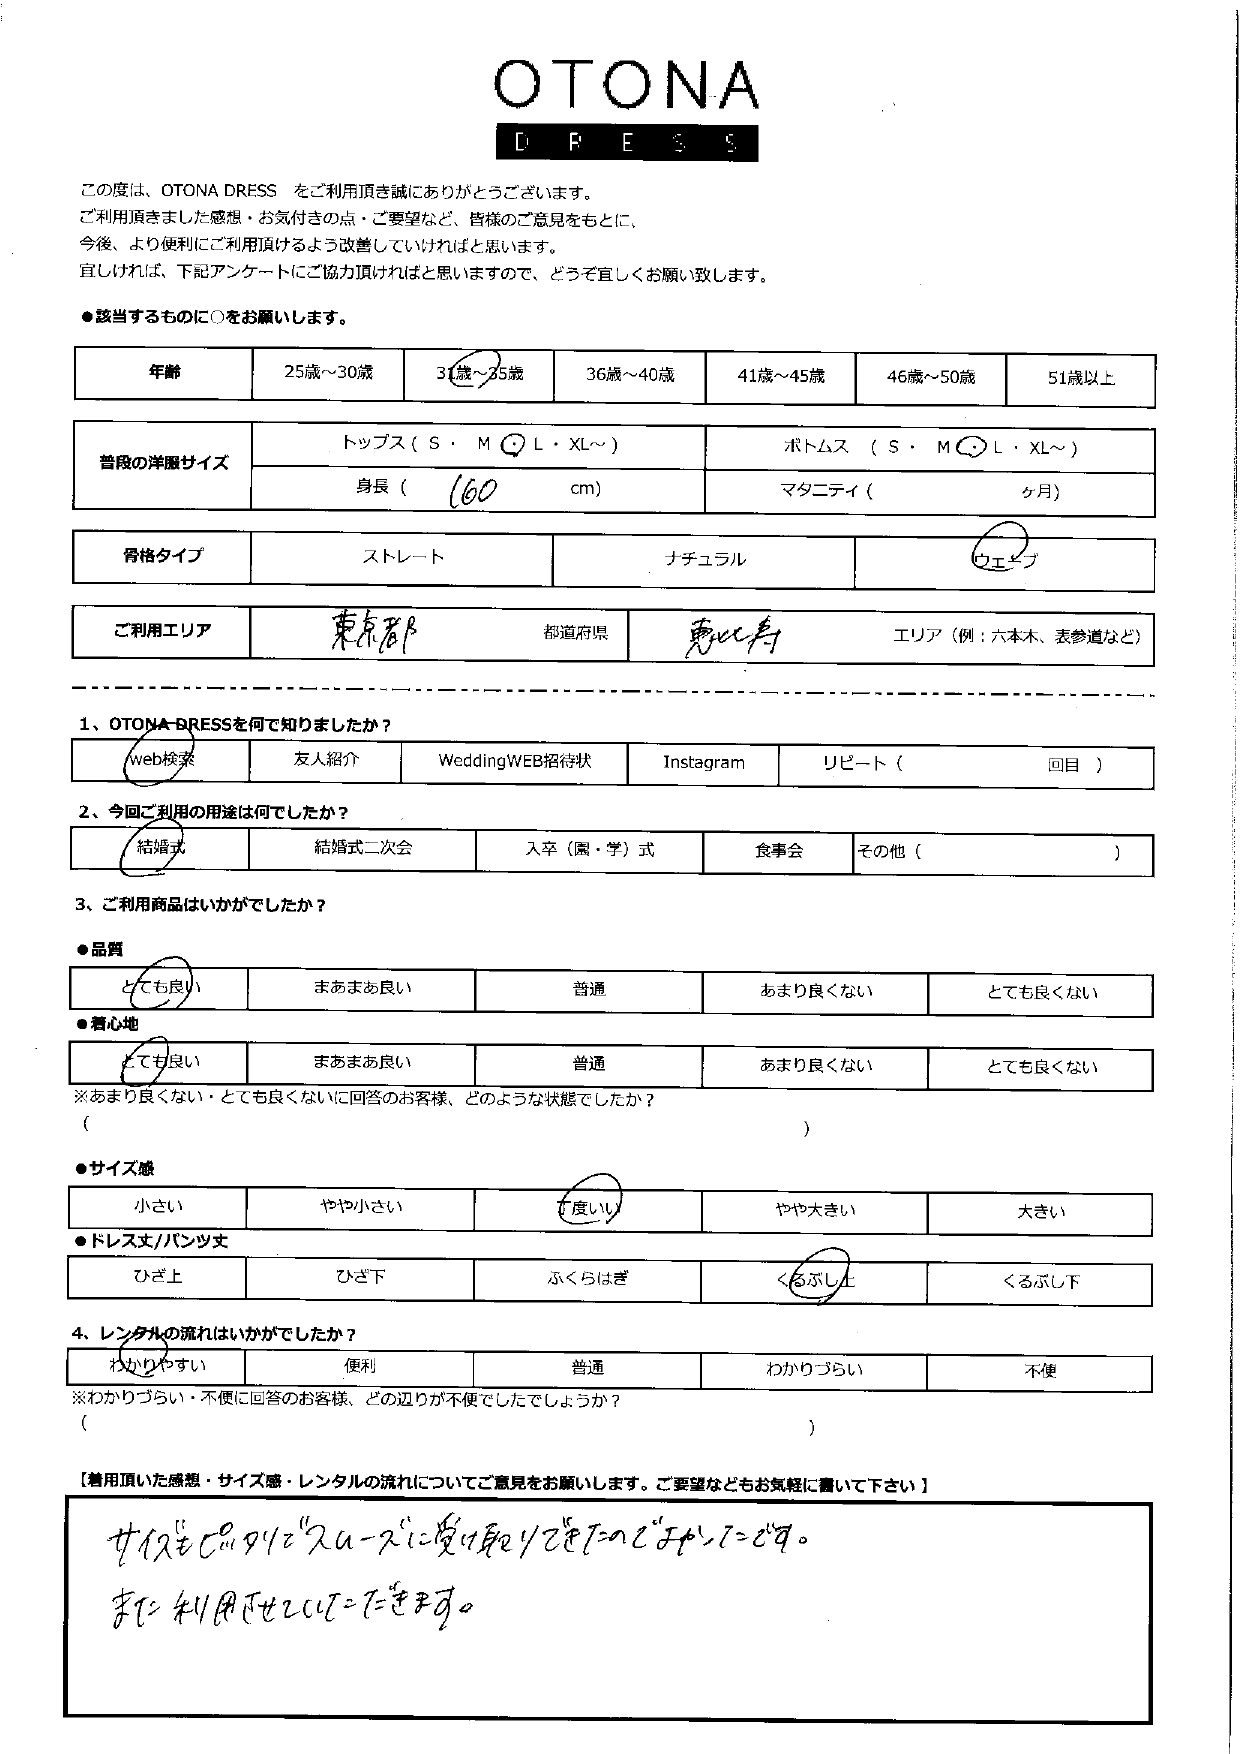 OTONA
DRESS
この度は、OTONA DRESS　をご利用頂き誠にありがとうございます。
ご利用頂きました感想・お気付きの点・ご要望など、皆様のご意見をもとに、
今後、より便利にご利用頂けるよう改善していければと思います。
宜しければ、下記アンケートにご協力頂ければと思いますので、どうぞ宜しくお願い致します。
●該当するものに○をお願いします。
年齢 25歳～30歳 31歳～35歳 36歳～40歳 41歳～45歳 46歳～50歳 51歳以上
普段の洋服サイズ トップス ( S ・ M ・ L ・ XL～ ) ボトムス ( S ・ M ・ L ・ XL～ )
身長 ( 160 cm) マタニティ ( ヶ月)
骨格タイプ ストレート ナチュラル ウェーブ
ご利用エリア 東京都 都道府県 恵比寿 エリア（例：六本木、表参道など）
1、OTONA DRESSを何で知りましたか？
web検索 友人紹介 WeddingWEB招待状 Instagram リピート（ 回目 ）
2、今回ご利用の用途は何でしたか？
結婚式 結婚式二次会 入卒（園・学）式 食事会 その他（ ）
3、ご利用商品はいかがでしたか？
●品質
とても良い まあまあ良い 普通 あまり良くない とても良くない
●着心地
とても良い まあまあ良い 普通 あまり良くない とても良くない
※あまり良くない・とても良くないに回答のお客様、どのような状態でしたか？
( )
●サイズ感
小さい やや小さい 丁度いい やや大きい 大きい
●ドレス丈/パンツ丈
ひざ上 ひざ下 ふくらはぎ くるぶし上 くるぶし下
4、レンタルの流れはいかがでしたか？
わかりやすい 便利 普通 わかりづらい 不便
※わかりづらい・不便に回答のお客様、どの辺りが不便でしたでしょうか？
( )
【着用頂いた感想・サイズ感・レンタルの流れについてご意見をお願いします。ご要望などもお気軽に書いて下さい】
サイズもピッタリでスムーズに受け取りできたのでよかったです。
また利用させていただきます。